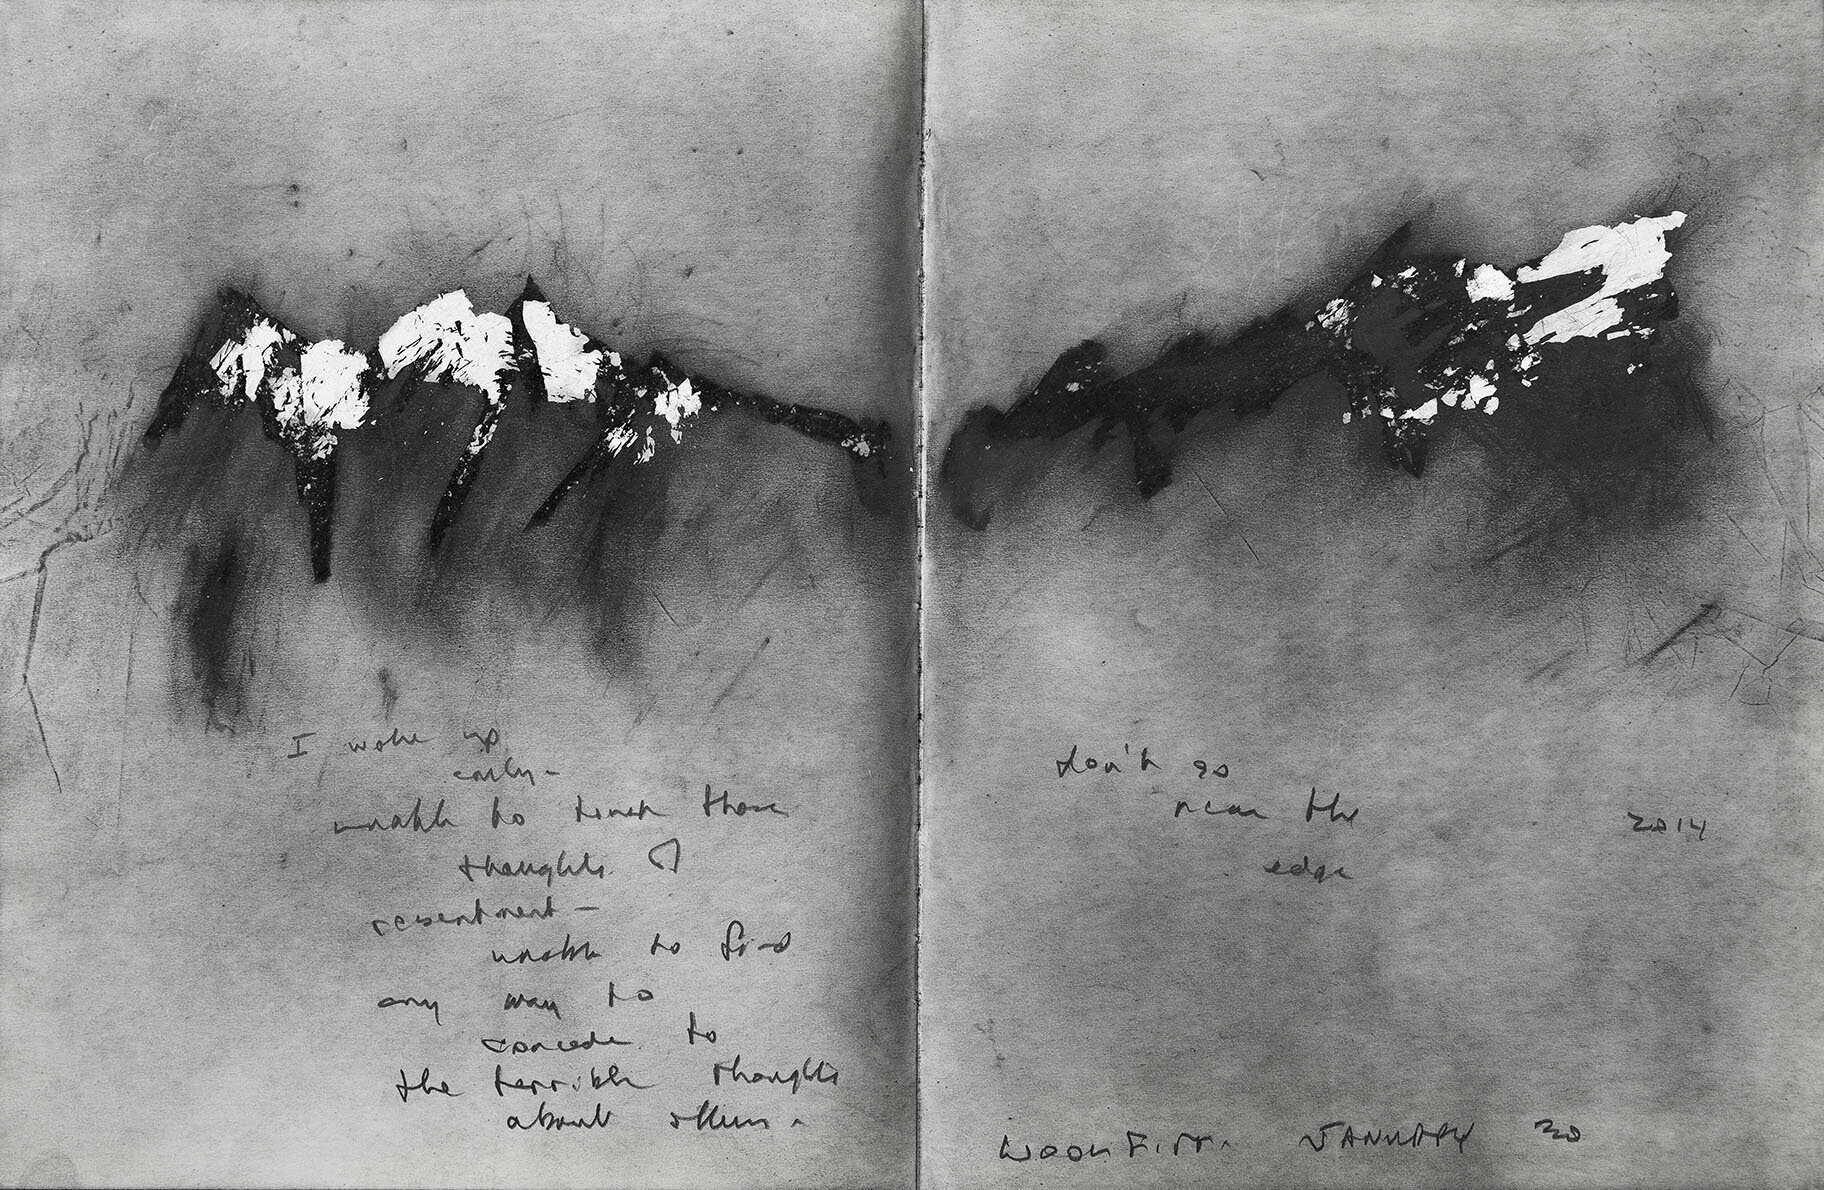 I woke up
early -
unable to those
thoughts of
resentment -
unable to find
any way to
concede to
the terrible thoughts
about others.
don't go
near the
edge
2014
JANUARY 30